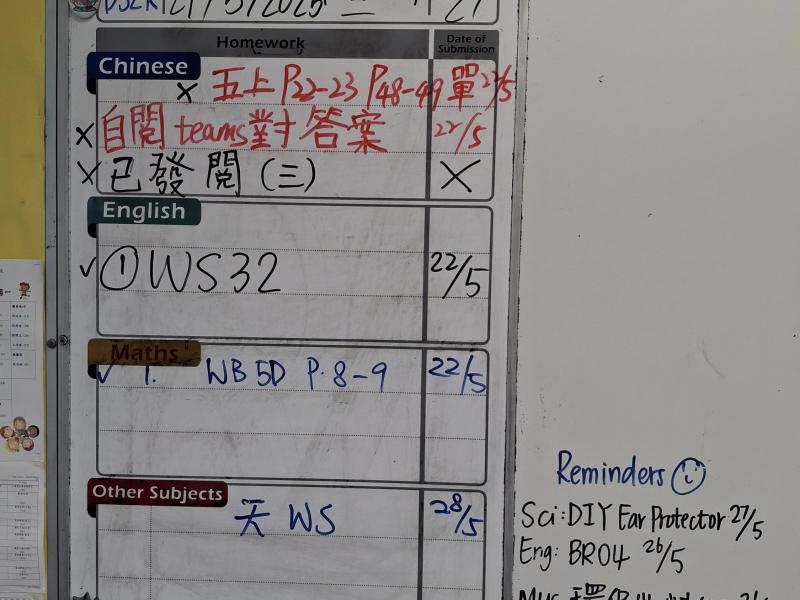 21/5/2025
Homework
Date of Submission
Chinese
x 五上 P22-23 P48-49 單 22/5
x 自閱 teams 對答案 22/5
x 已發閱 (三) X
English
✓ ① WS32 22/5
Maths
✓ 1. WB 5D P.8-9 22/5
Other Subjects
天 WS 28/5
Reminders
Sci: DIY Ear Protector 27/5
Eng: BR04 26/5